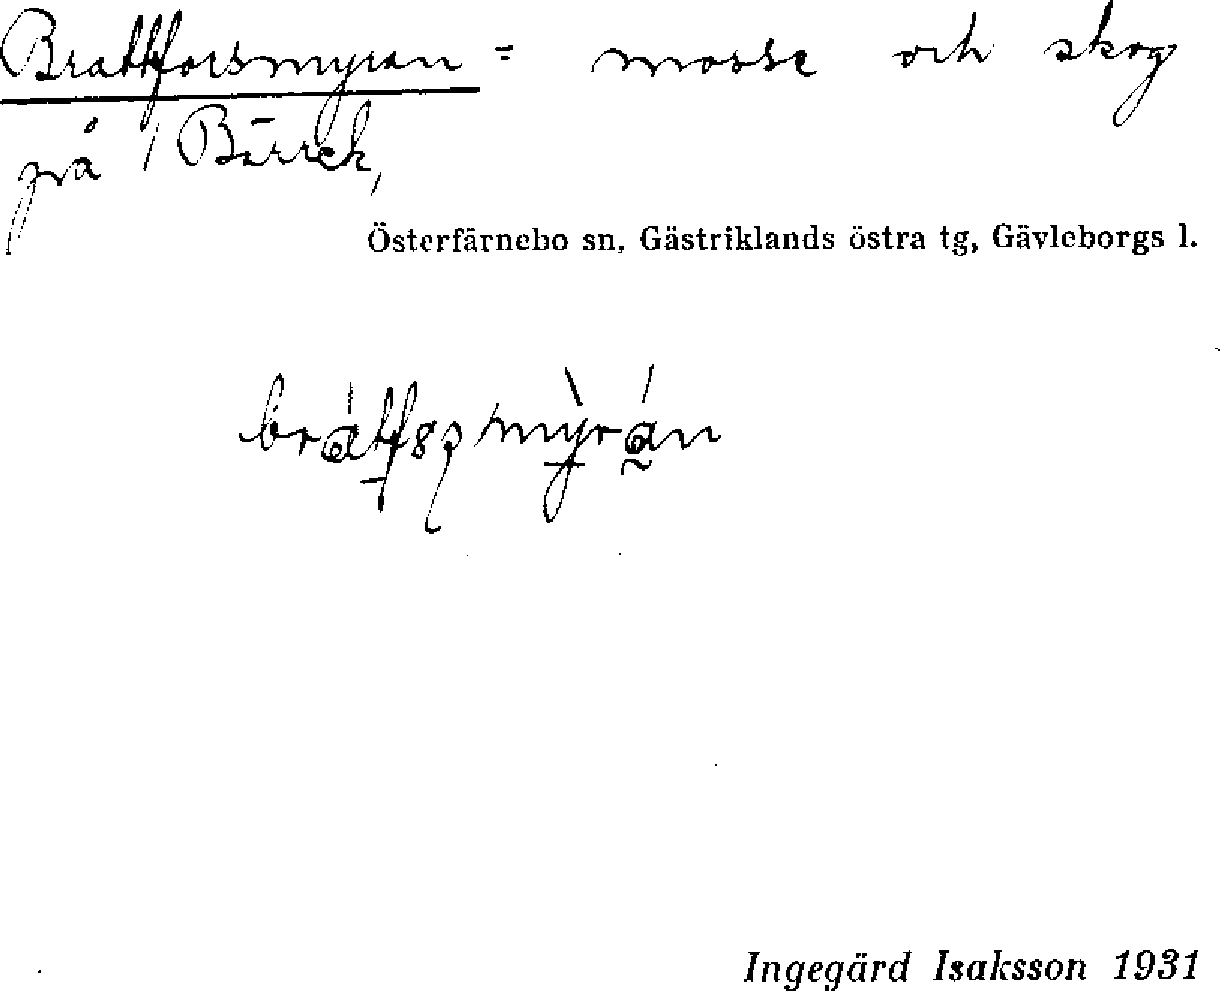 Brattforsmyran = mosse och skog
på Bärrek,
Österfärnebo sn, Gästriklands östra tg, Gävleborgs l.
Ingegärd Isaksson 1931